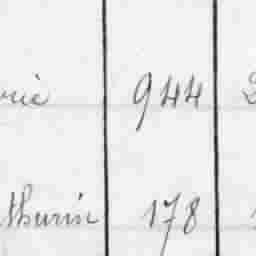 rie 944
thurin 178